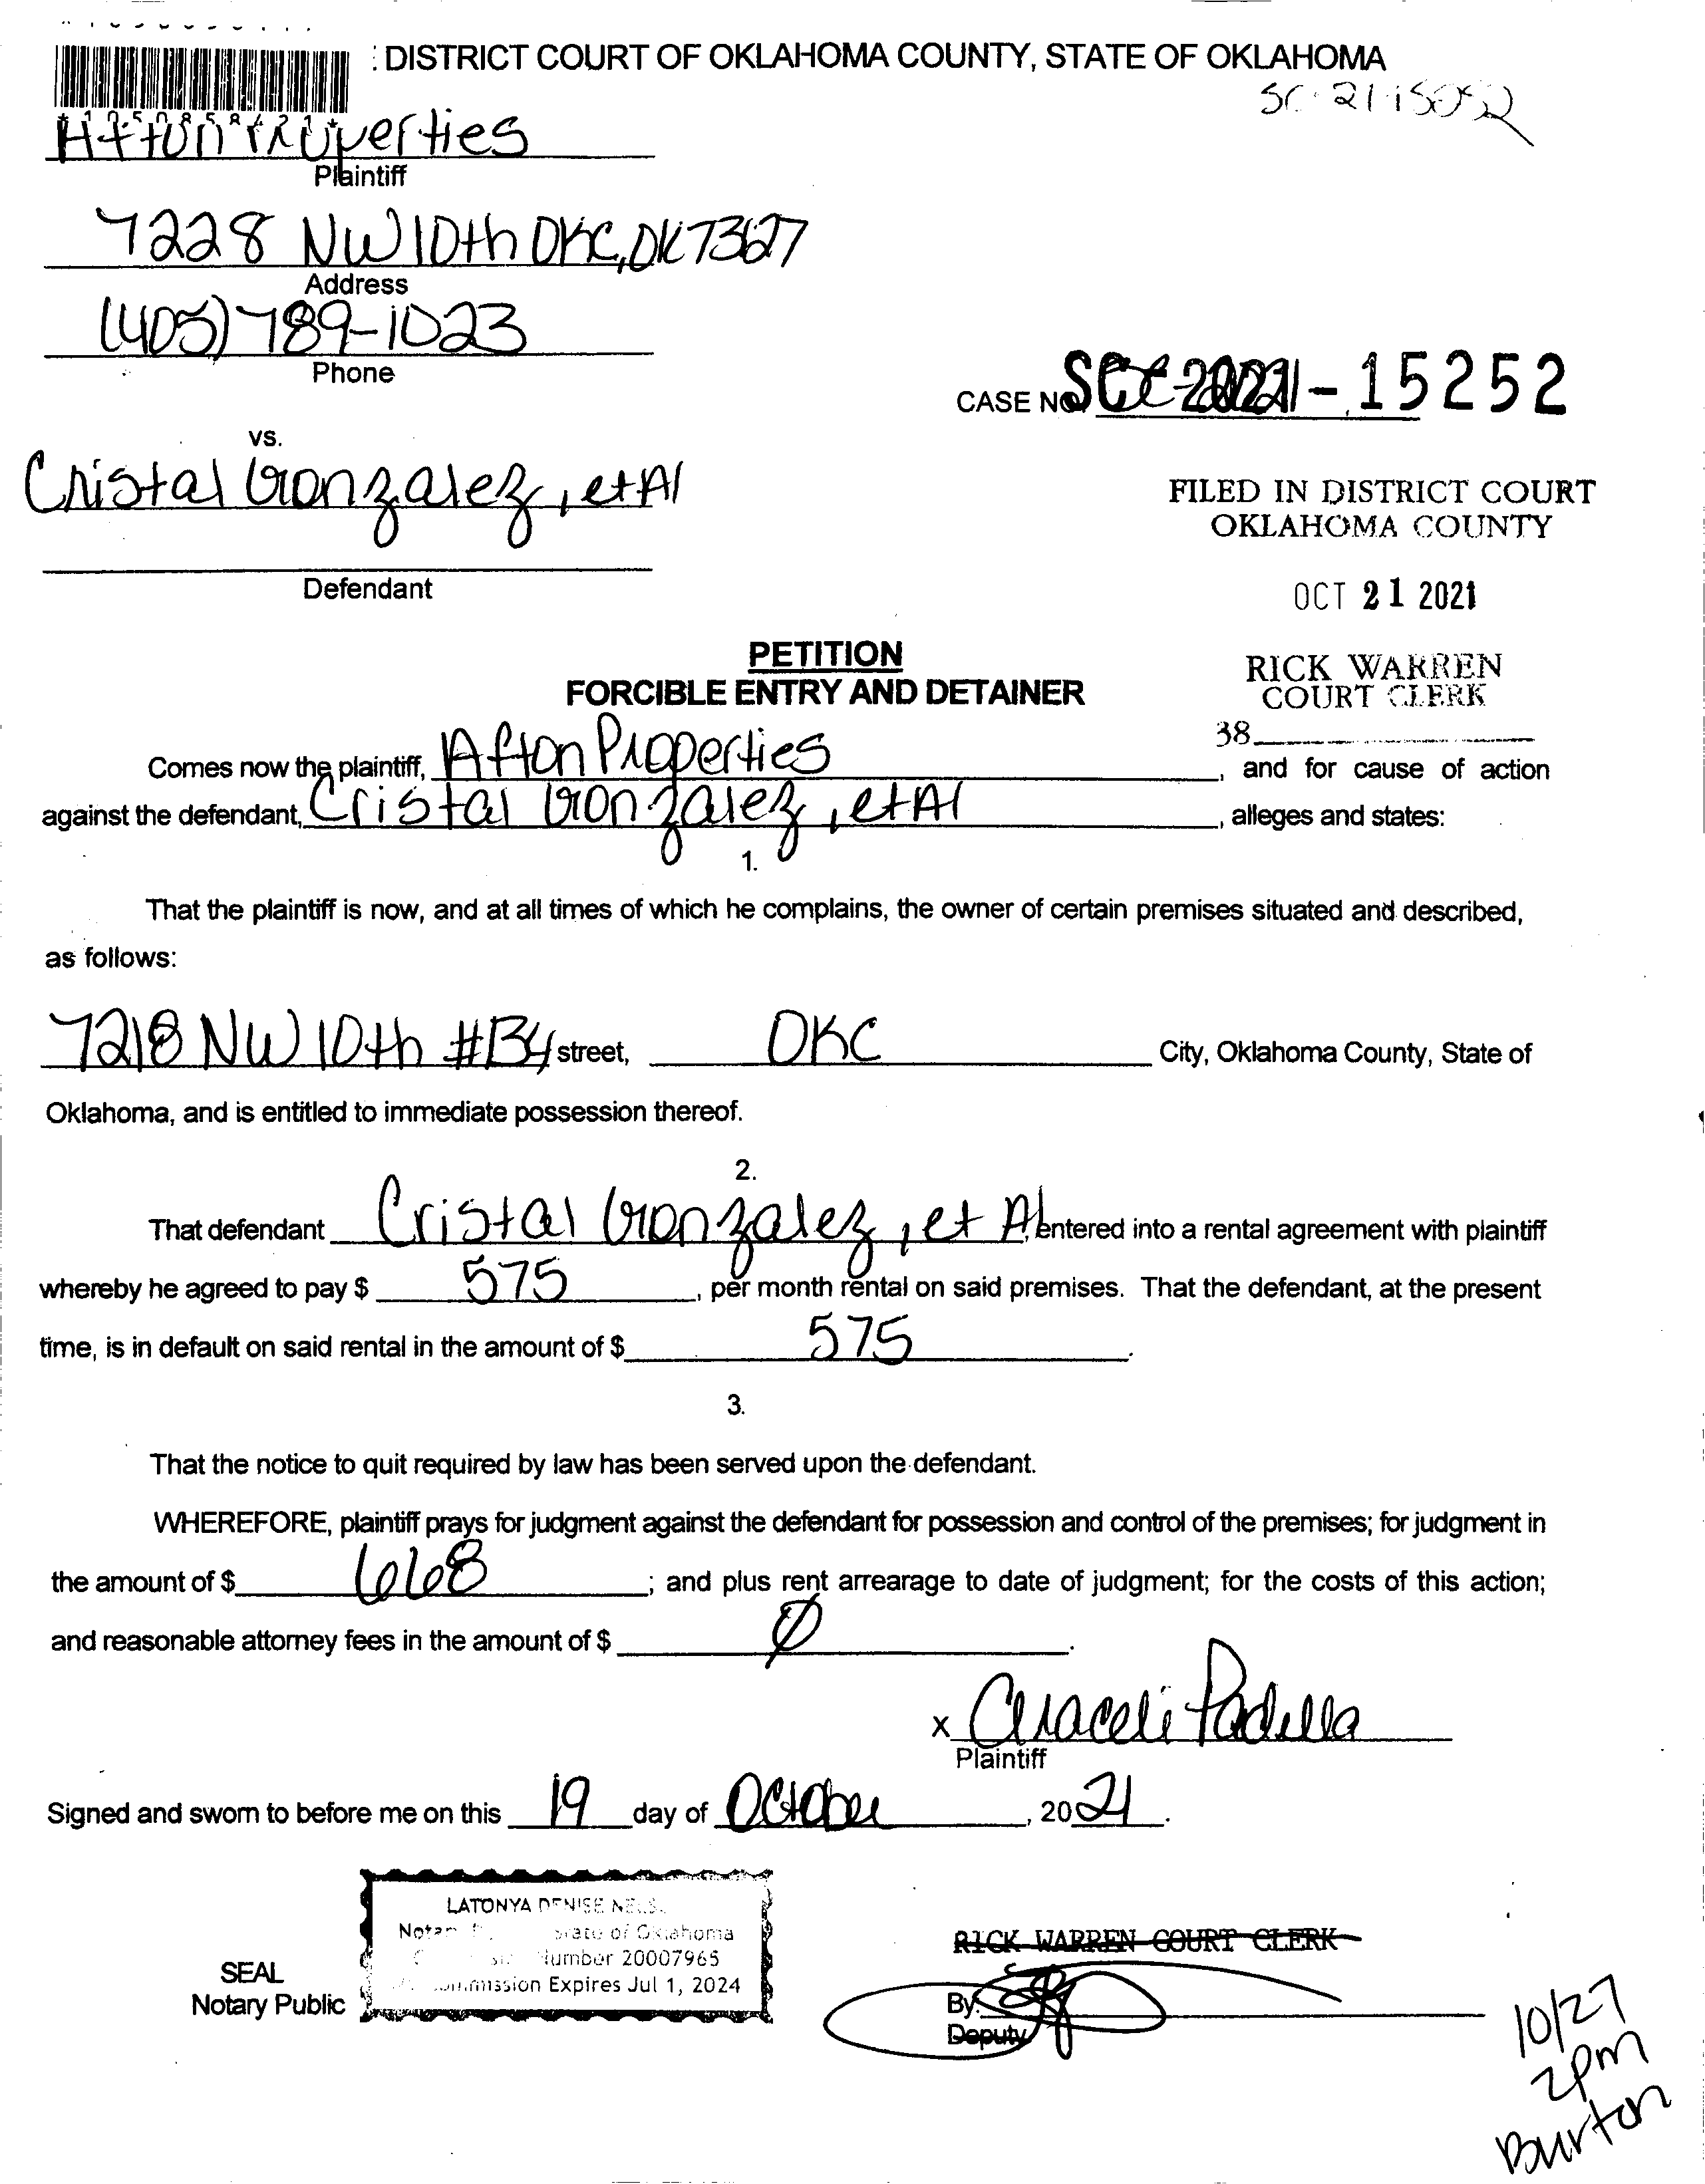 : DISTRICT COURT OF OKLAHOMA COUNTY, STATE OF OKLAHOMA
Afton Properties
Plaintiff
7228 NW 10th OKC, OK 73127
Address
(405) 789-1023
Phone
CASE NO. - 15252
vs.
Cristal Gonzalez, et Al
FILED IN DISTRICT COURT
OKLAHOMA COUNTY
Defendant
OCT 21 2021
PETITION
FORCIBLE ENTRY AND DETAINER
RICK WARREN
COURT CLERK
38
Comes now the plaintiff, Afton Properties, and for cause of action
against the defendant, Cristal Gonzalez, et Al, alleges and states:
1.
That the plaintiff is now, and at all times of which he complains, the owner of certain premises situated and described,
as follows:
7218 NW 10th #134 street, OKC City, Oklahoma County, State of
Oklahoma, and is entitled to immediate possession thereof.
2.
That defendant Cristal Gonzalez, et Al, entered into a rental agreement with plaintiff
whereby he agreed to pay $ 575, per month rental on said premises. That the defendant, at the present
time, is in default on said rental in the amount of $ 575.
3.
That the notice to quit required by law has been served upon the defendant.
WHEREFORE, plaintiff prays for judgment against the defendant for possession and control of the premises; for judgment in
the amount of $ 668; and plus rent arrearage to date of judgment; for the costs of this action;
and reasonable attorney fees in the amount of $ Ø.
x Araceli Padilla
Plaintiff
Signed and sworn to before me on this 19 day of October, 2021.
LATONYA DENISE
State of Oklahoma
Number 20007965
Commission Expires Jul 1, 2024
SEAL
Notary Public
RICK WARREN COURT CLERK
By:
Deputy
10/27
2pm
Burton